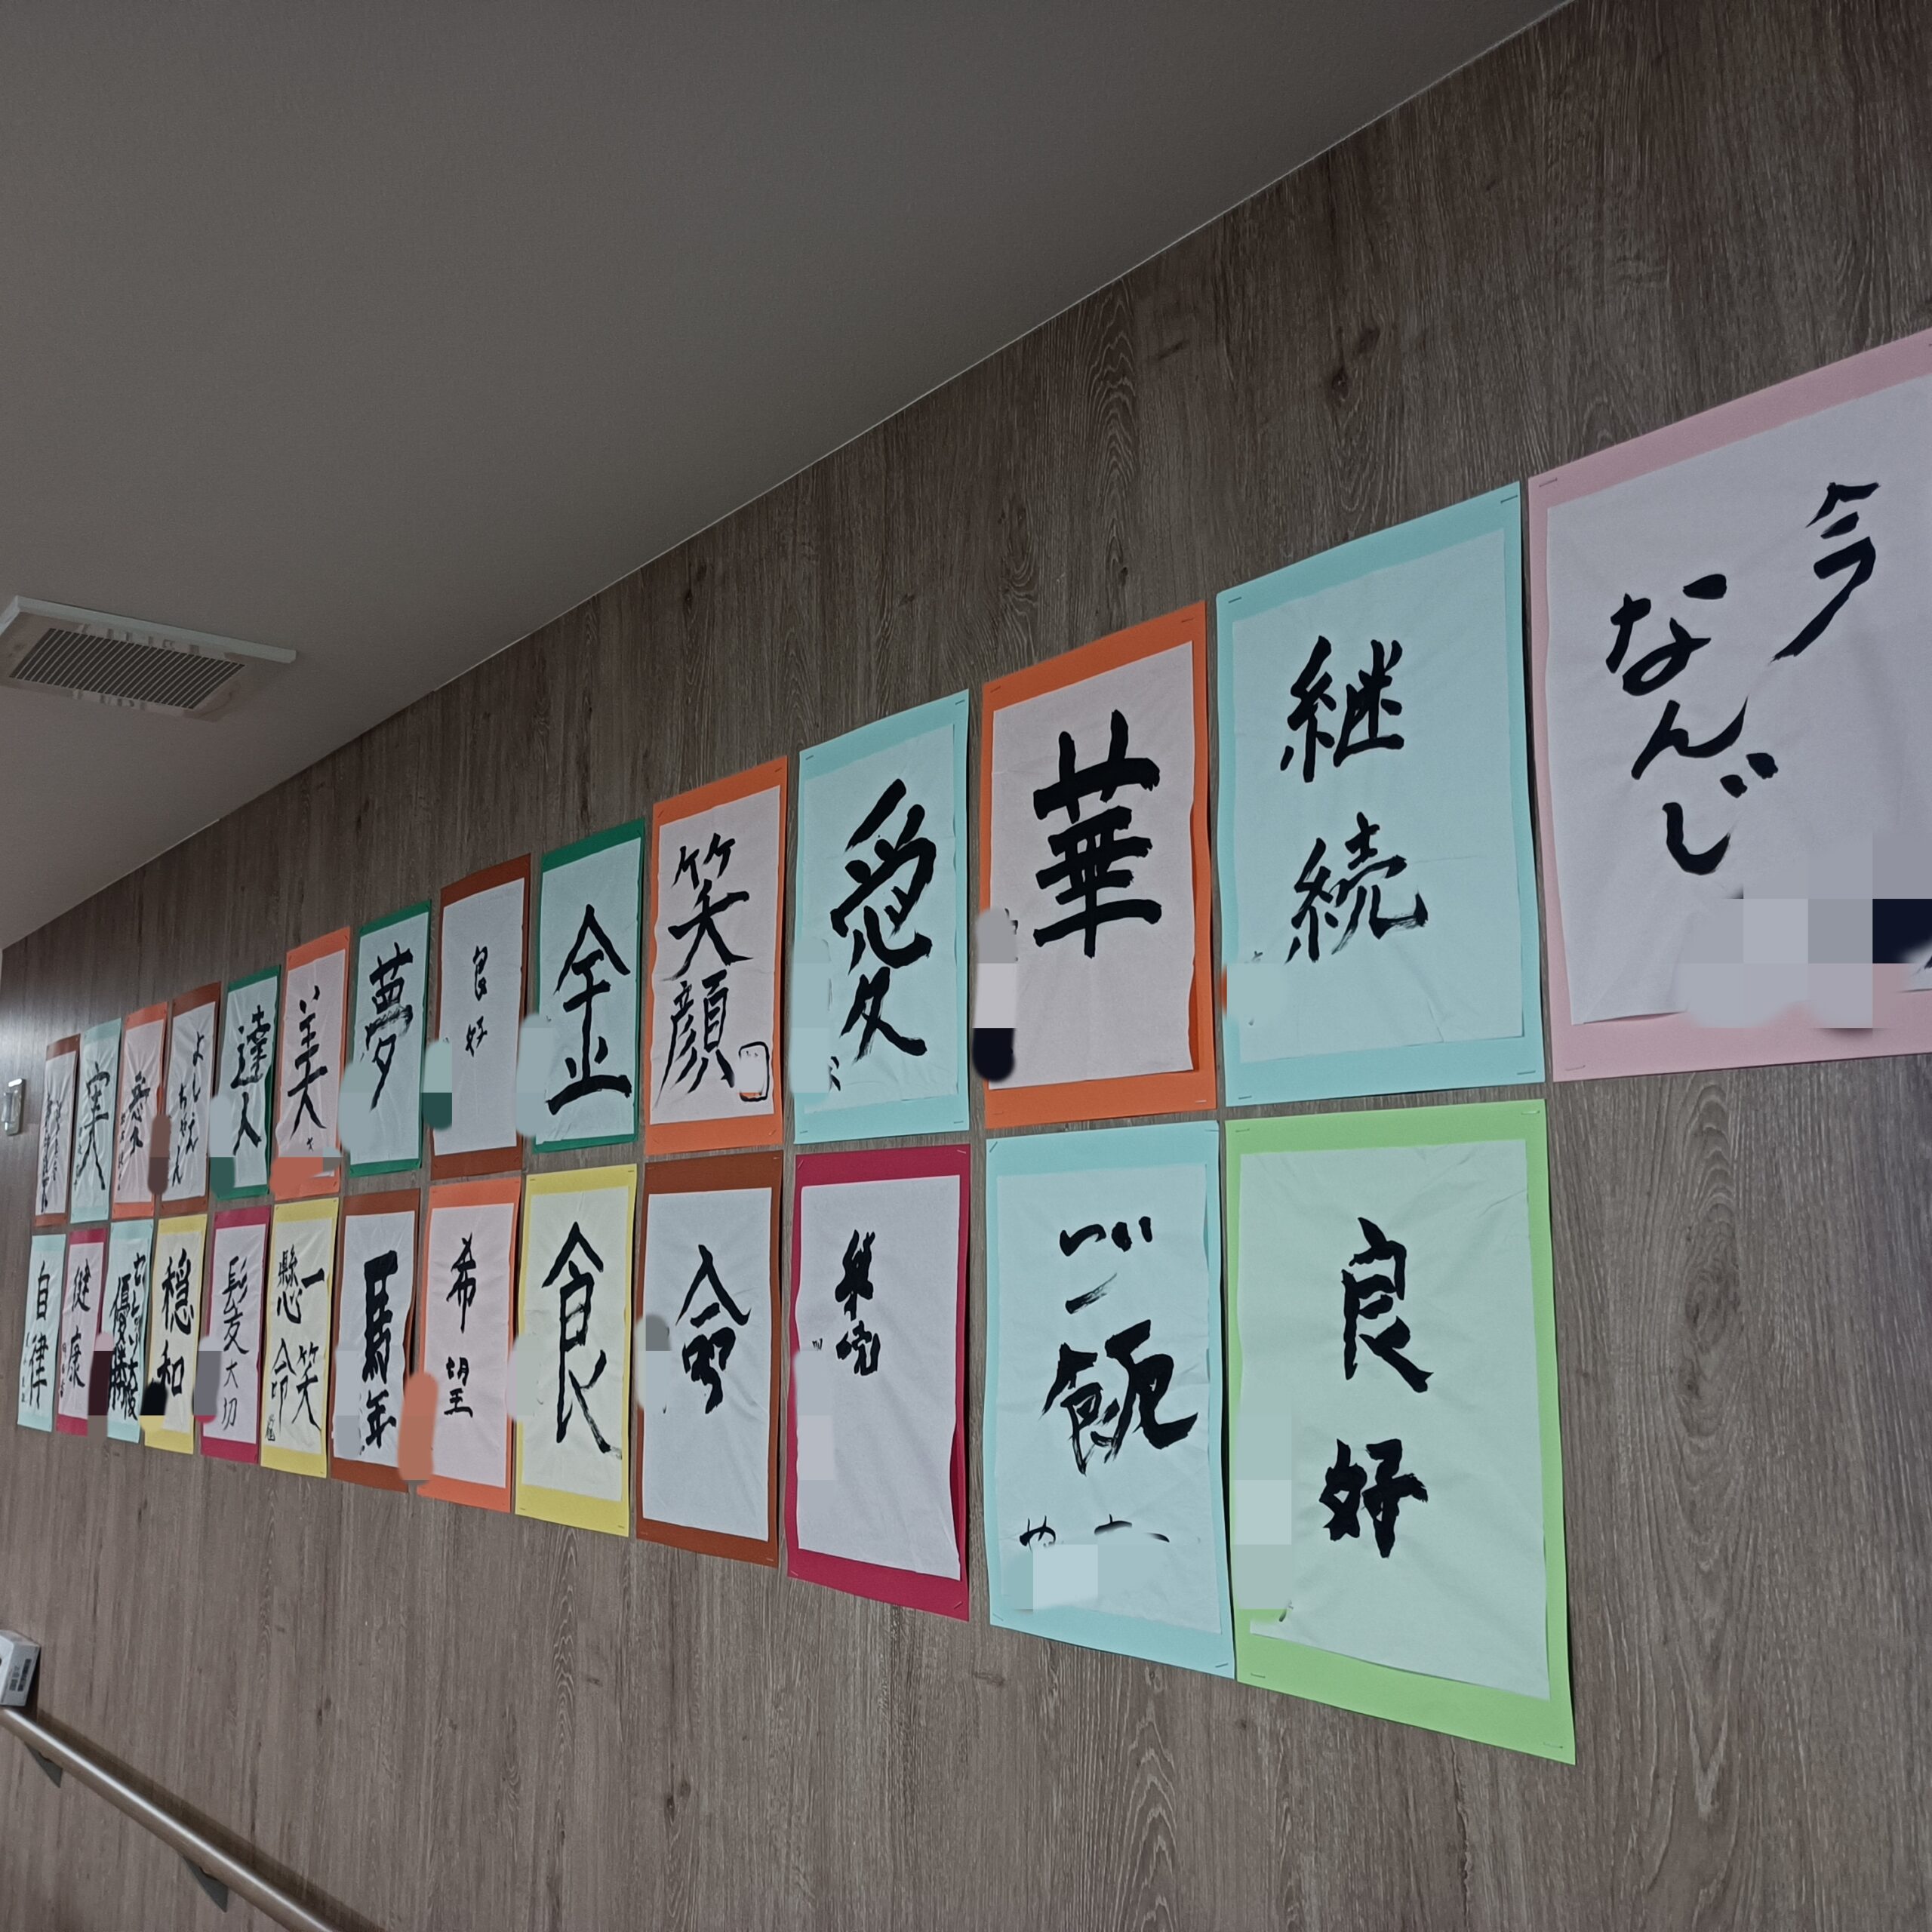 今
なんじ
継続
華
愛
笑顔
金
良好
夢
美
達人
実
良好
ご飯
命
食
希望
馬年
一笑
懸命
髪大切
穏和
優勝
健康
自律